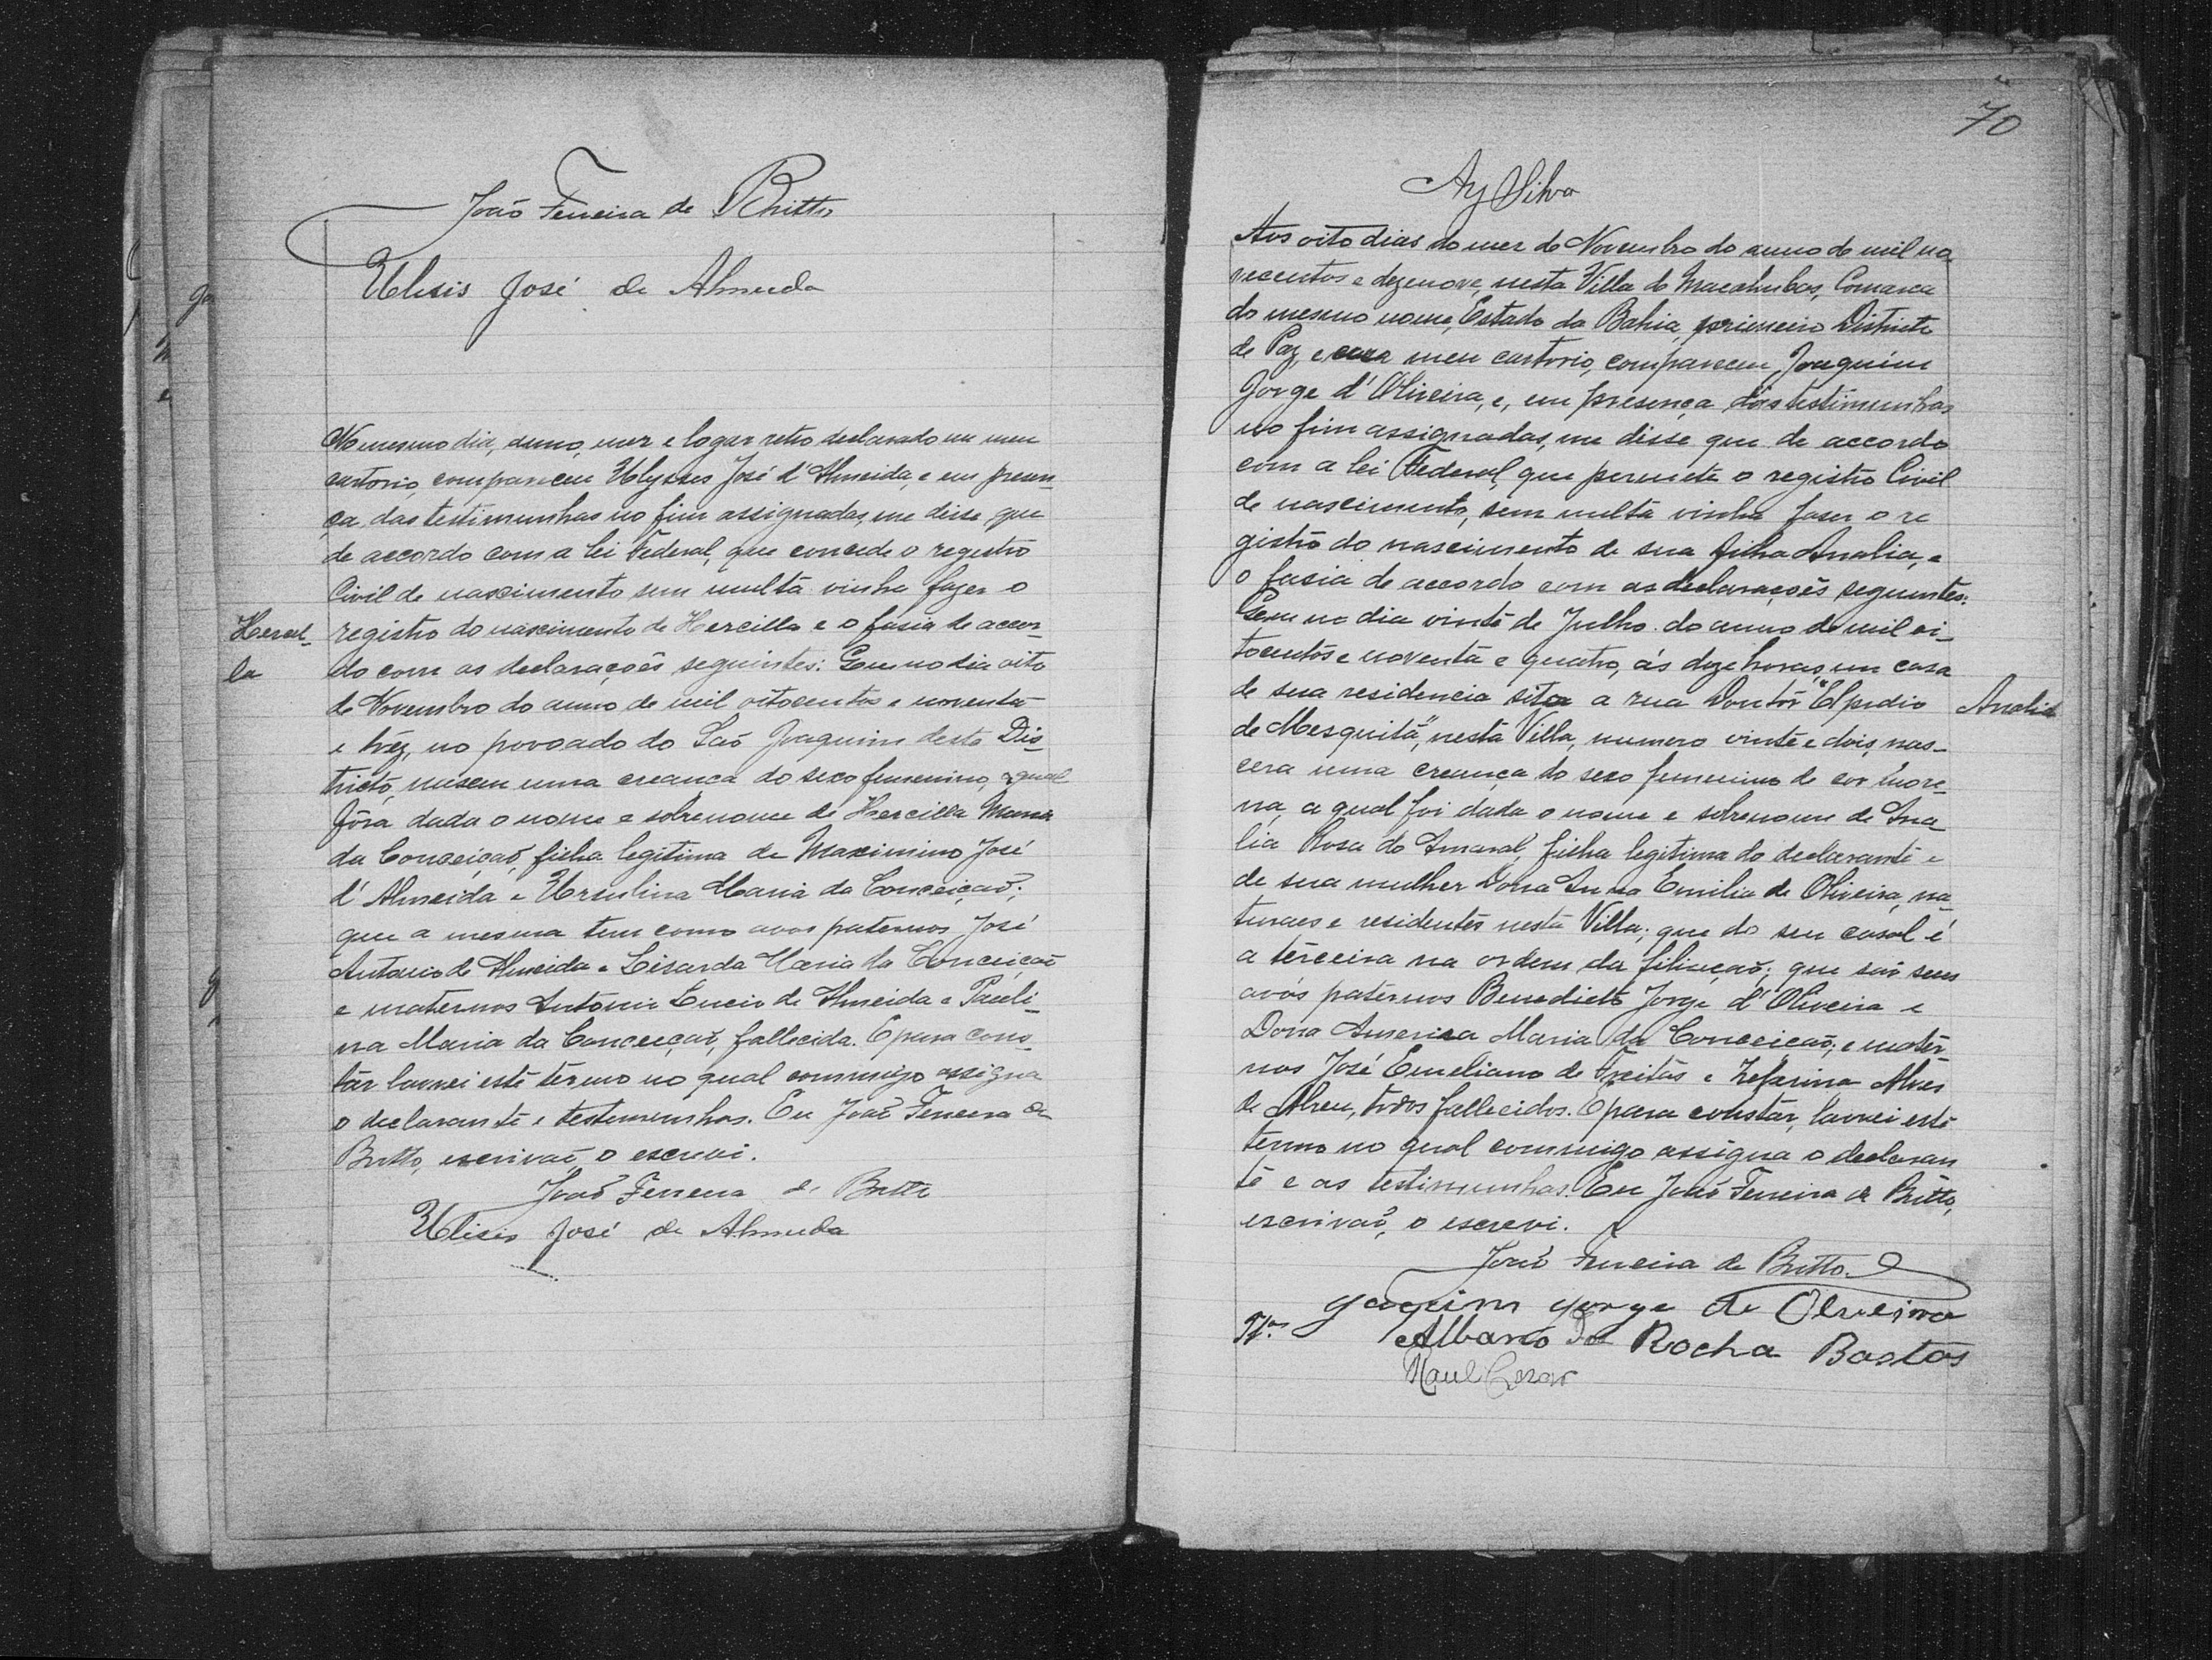 João Ferreira de Britto
Ulisis José de Almeida
No mesmo dia, anno, mez e logar retro declarado em meu
cartorio, compareceu Ulysses José d'Almeida, e em presen-
ça das testimunhas no fim assignadas, me disse que
de accordo com a lei Federal, que concede o registro
Civil de nascimento sem multa vinha fazer o
registro do nascimento de Hercilla e o fasia de accor-
do com as declarações seguintes: Que no dia oito
de Novembro do anno de mil oitocentos e noventa
e trêz, no povoado do São Joaquim deste Dis-
tricto, nasceu uma creança do sexo femenino, a qual
fôra dada o nome e sobrenome de Hercilla Maria
da Conceição, filha legitima de Maximino José
d'Almeida e Ursulina Maria da Conceição;
que a mesma tem como avos paternos José
Antonio de Almeida e Lisarda Maria da Conceição
e maternos Antonio Lucio de Almeida e Pauli-
na Maria da Conceição, fallecida. E para cons-
tar lavrei este termo no qual commigo assigna
o declarante e testemunhas. Eu João Ferreira de
Britto, escrivaõ o escrevi.
João Ferreira de Britto
Ulisis José de Almeida
Hercil-
la
70
Ay Silva
Aos oito dias do mez de Novembro do anno de mil no
vecentos e dezenove, nesta Villa de Macahubas, Comarca
do mesmo nome, Estado da Bahia, primeiro Districto
de Paz, e meu cartorio, compareceu, Joaquim
Jorge d'Oliveira, e, em presença das testimunhas
no fim assignadas, me disse que de accordo
com a lei Federal, que permete o registro Civil
de nascimento, sem multa vinha faser o re
gistro do nascimento de sua filha Analia, e
o fasia de accordo com as declarações seguintes:
Que no dia vinte de Julho do anno de mil oi-
tocentos e noventa e quatro, ás doze horas, em casa
de sua residencia sita a rua Doutor "Elpidio
de Mesquita", nesta Villa, numero vinte e dois, nas-
cera uma creança do sexo femenino de cor more-
na, a qual foi dada o nome e sobrenome de Ana
lia Rosa do Amaral, filha legitima do declarante e
de sua mulher Dona Anna Emilia de Oliveira, na-
turaes e residentes nesta Villa; que do seu casal é
a terceira na ordem da filiação; que são seus
avós paternos Benedicto Jorge d'Oliveira e
Dona America Maria da Conceição; e mater-
nos José Emeliano de Freitas e Zeferina Alves
de Abreu, todos fallecidos. E para constar, lavrei este
termo no qual commigo assigna o declaran
te e as testimunhas. Eu João Ferreira de Britto,
escrivaõ, o escrevi.
João Ferreira de Britto
Joaqim Jorge de Oliveira
Albano da Rocha Bastos
Raul Cezar
Analia